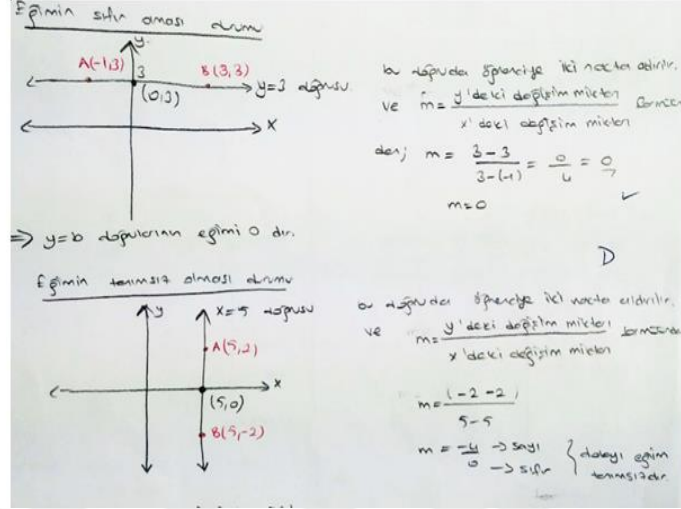 Eğimin sıfır olması durumu
y
A(-1,3)
3
B(3,3)
(0,3)
y=3 doğrusu
x
bu doğruda öğrenciye iki nokta aldırılır.
ve m = y'deki değişim miktarı / x'deki değişim miktarı
den; m = 3-3 / 3-(-1) = 0/4 = 0
m=0
✓
⇒ y=b doğrularının eğimi 0 dır.
D
Eğimin tanımsız olması durumu
y
x=5 doğrusu
A(5,2)
x
(5,0)
B(5,-2)
bu doğruda öğrenciye iki nokta aldırılır.
ve m = y'deki değişim miktarı / x'deki değişim miktarı
m = (-2-2) / 5-5
m = -4/0 → sayı → sıfır } dolayı eğim
tanımsızdır.